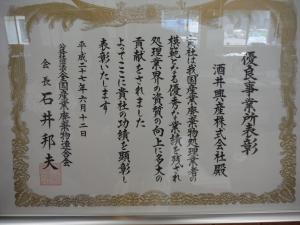 優良事業所表彰
酒井興産株式会社殿
貴社は我国産業廃棄物処理業者の
模範となる優秀な業績を残され
処理業界の資質の向上に多大の
貢献をされました
よってここに貴社の功績を顕彰し
表彰いたします
平成二十七年六月十二日
公益社団法人全国産業廃棄物連合会
会長 石井邦夫